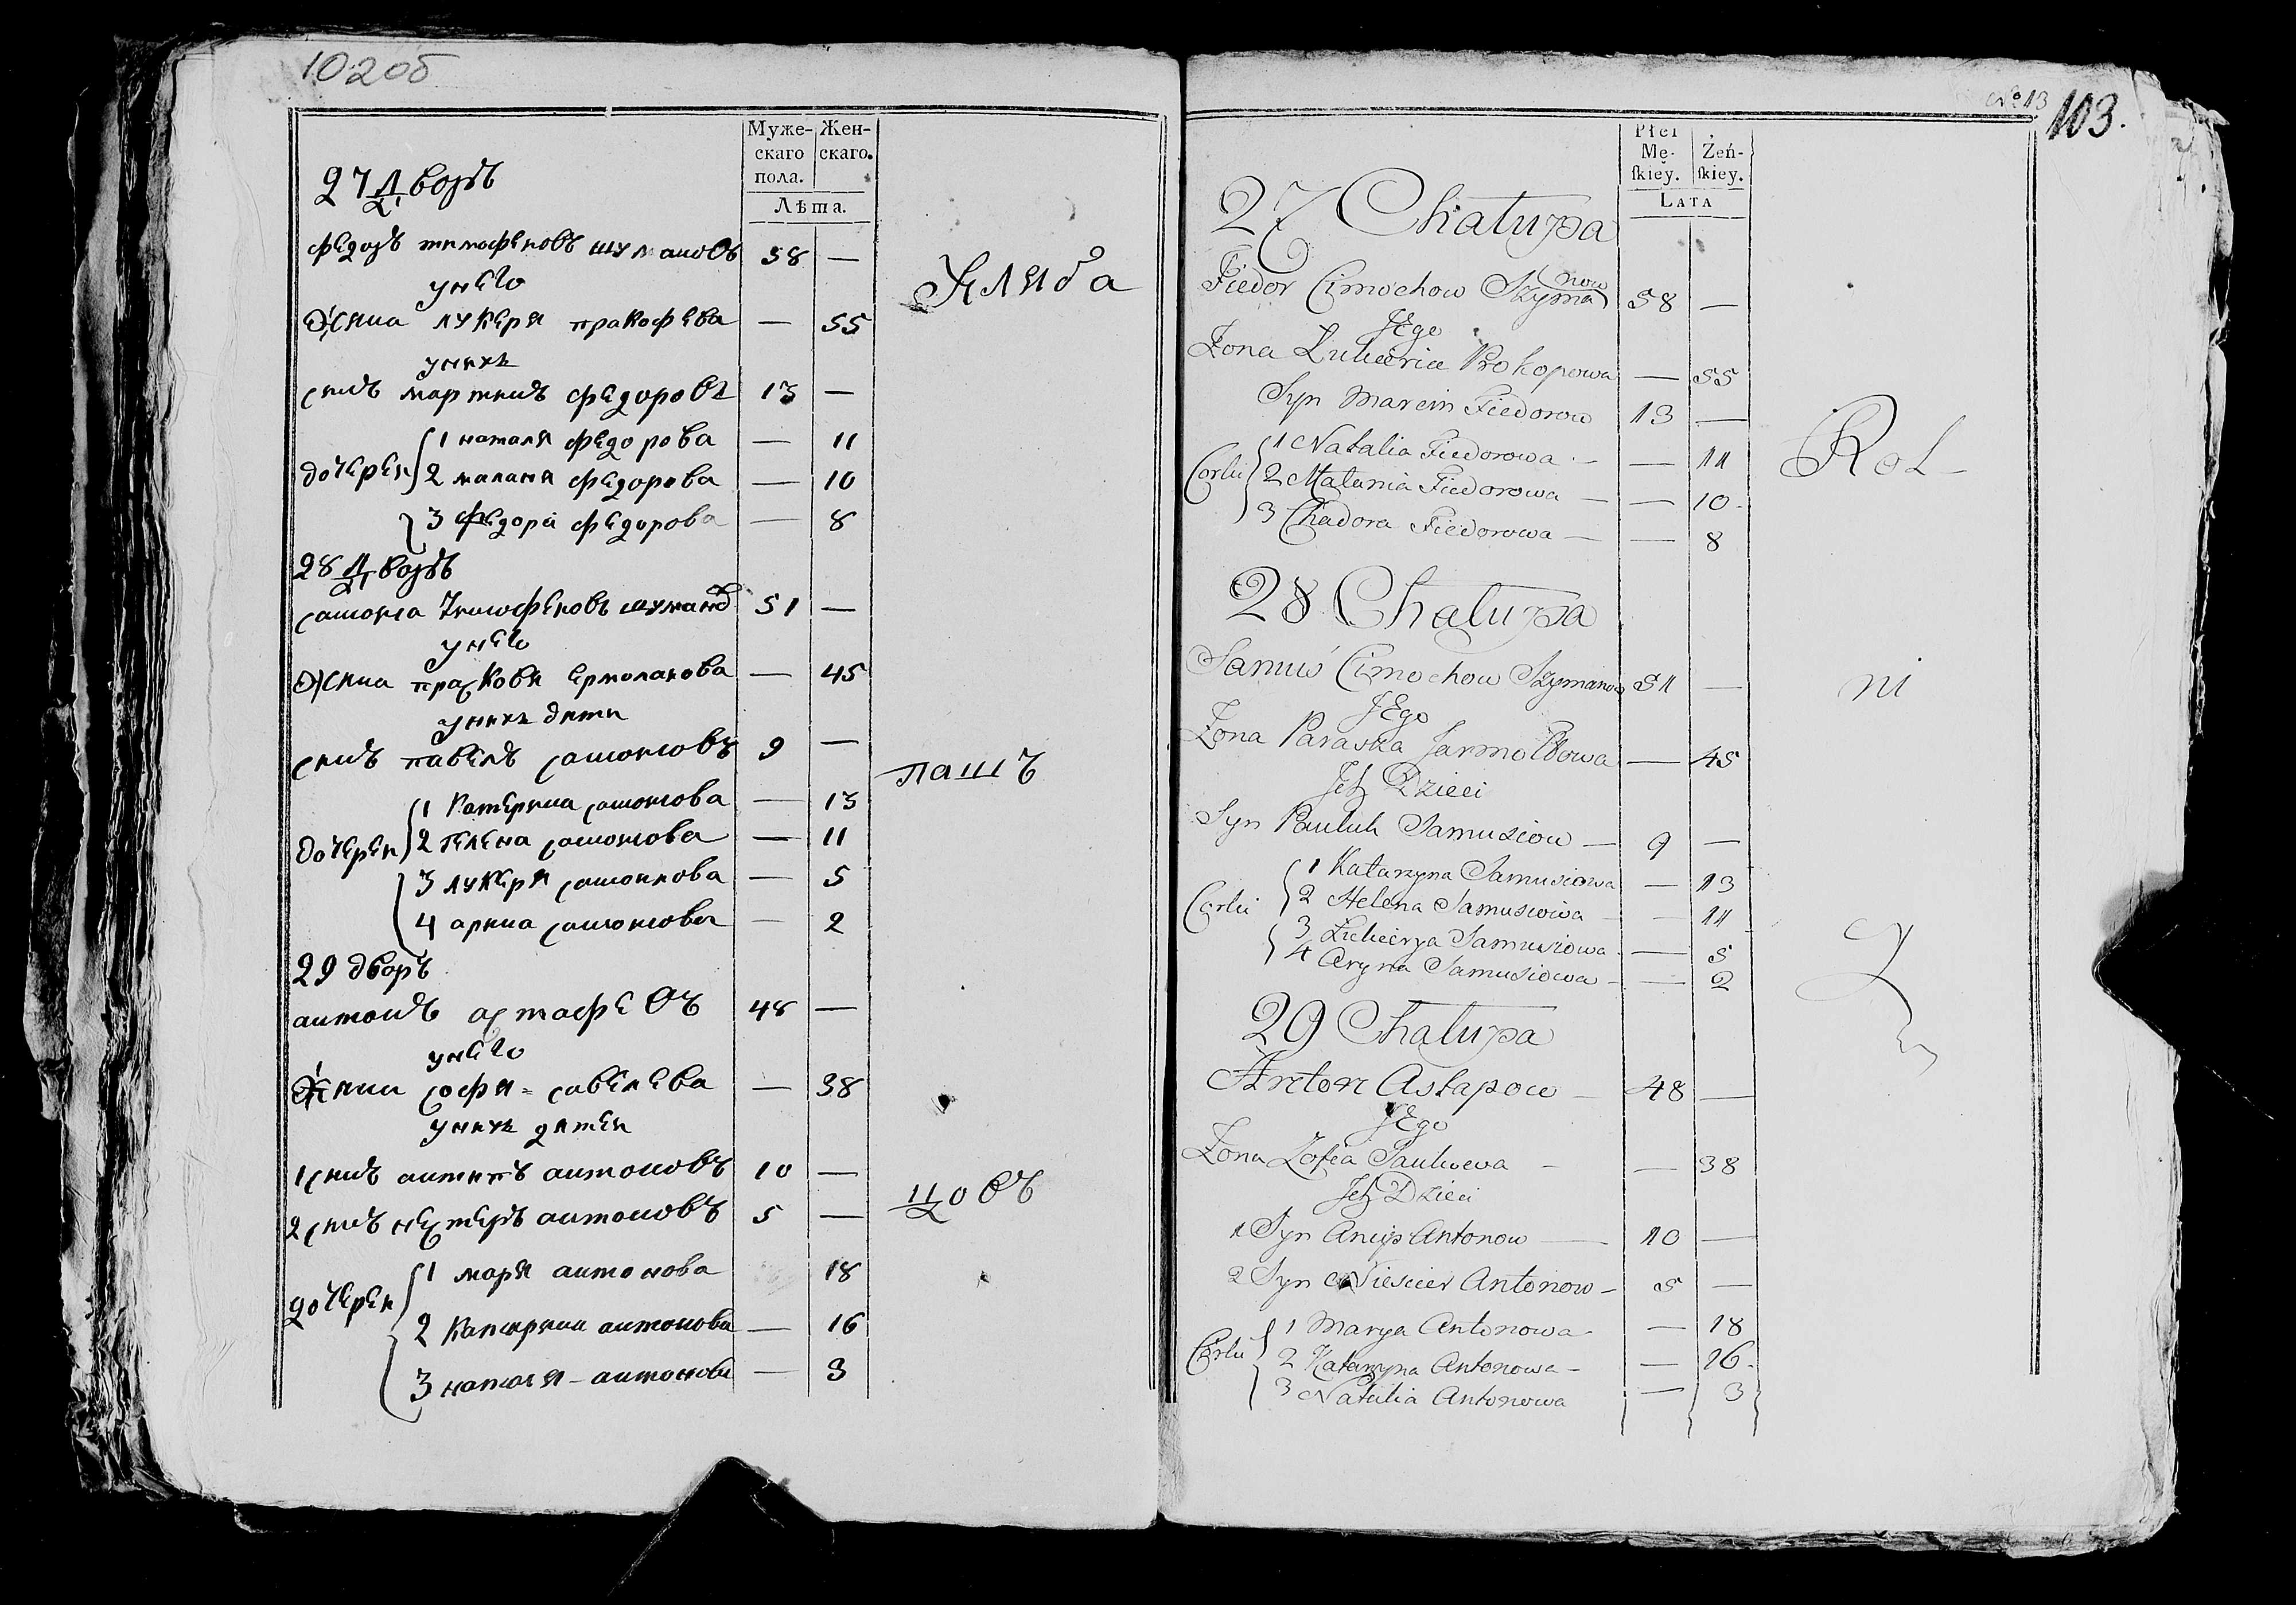 102об
Муже-
скаго
пола.
Жен-
скаго.
Лѣта.
27 Дворъ
федоръ тимофеиовъ шумановъ 58 —
унего
Жина лукеря пракофева — 55
унихъ
синъ мартинъ федоровъ 13 —
дочереи
1 наталя федорова — 11
2 маланя федорова — 10
3 федора федорова — 8
28 Дворъ
самоила Тимофеиовъ шуманов 51 —
унего
Жина прасковя ермолаиова — 45
унихъ дити
синъ павелъ самоиловъ 9 —
дочереи
1 Катерина самоилова — 13
2 гелена самоилова — 11
3 лукеря самоилова — 5
4 арина самоилова — 2
29 дворъ
антонъ астафевъ 48 —
унего
Жина софя = савелева — 38
унихъ дятеи
1 синъ антипъ антоновъ 10 —
2 синъ нестеръ антоновъ 5 —
дочереи
1 маря антонова 18
2 Катирина антонова — 16
3 наталя - антонова — 3
Хлиба
пашъ
цовъ
№ 13
103.
Płci
Mę-
ſkiey.
Żeń-
ſkiey.
Lata
27 Chałupa
Fiedor Cimochow Szymanow 58 —
JEgo
Żona Łukieria Prokopowa — 55
Syn Marcin Fiedorow 13 —
Corki
1 Natalia Fiedorowa — — 11
2 Małania Fiedorowa — — 10
3 Chadora Fiedorowa — — 8
28 Chałupa
Samuś Cimochow Szymanow 51 —
JEgo
Żona Paraska Jarmołowa — 45
Jch Dzieci
Syn Pauluk Samusiow — 9 —
Corki
1 Katarzyna Samusiowa — 13
2 Helena Samusiowa — 11
3 Łukierya Samusiowa — 5
4 Aryna Samusiowa — — 2
29 Chałupa
Anton Astapow — 48 —
JEgo
Żona Zofia Saukowa — — 38
Jch Dzieci
1 Syn Ancip Antonow — 10 —
2 Syn Niescier Antonow — 5 —
Corki
1 Marya Antonowa — 18
2 Katarzyna Antonowa — — 16
3 Natalia Antonowa — 3
Rol
ni